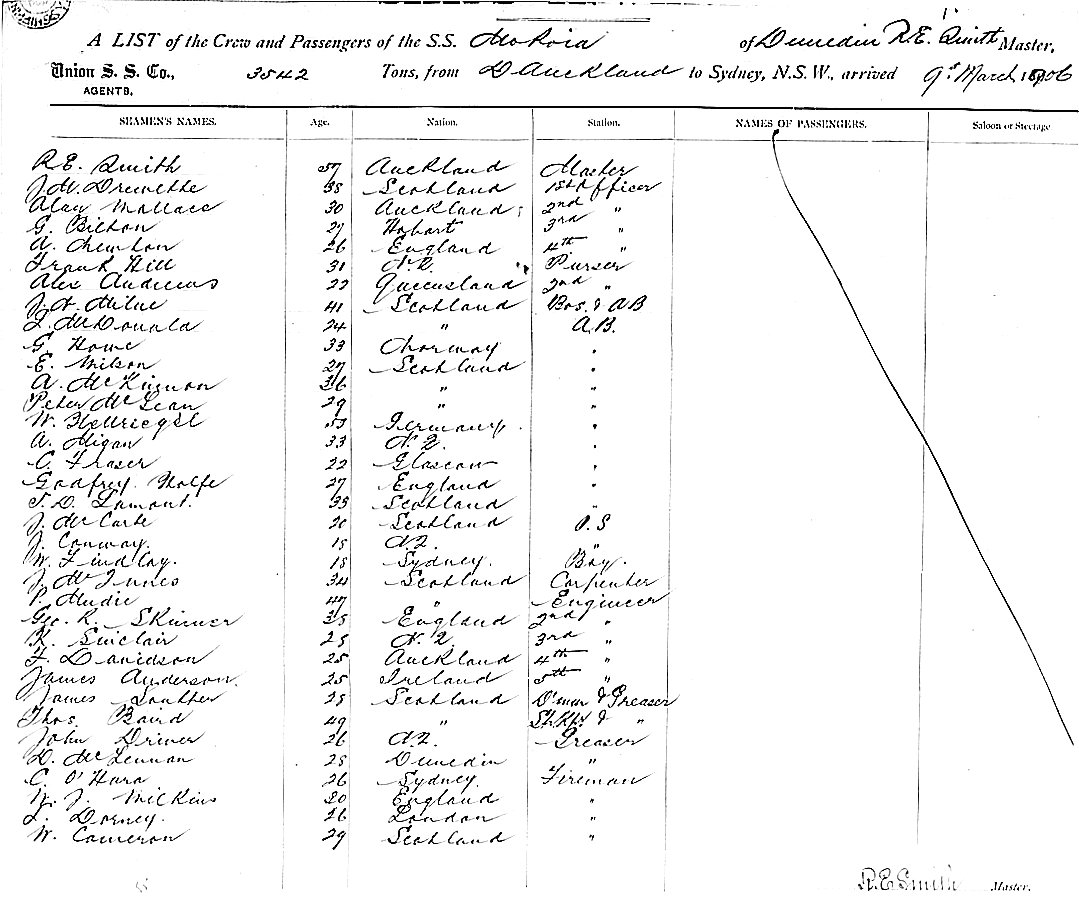 A LIST of the Crew and Passengers of the S.S. Mokoia of Dunedin R.E. Smith Master,
Union S. S. Co., 3542 Tons, from Auckland to Sydney, N.S.W., arrived 9th March, 1906
AGENTS,
SEAMEN'S NAMES. Age. Nation. Station. NAMES OF PASSENGERS. Saloon or Steerage
R.E. Smith 57 Auckland Master
J.M. Drewette 38 Scotland 1st Officer
Alay Wallace 30 Auckland 2nd "
G. Bilton 29 Hobart 3rd "
A. Chewton 26 England 4th "
Frank Hill 31 N.Z. Purser
Alex Andrews 22 Queensland 2nd "
J.A. Milne 41 Scotland Bos. & AB
McDonald 24 " A.B.
G. Howe 33 Norway "
E. Wilson 27 Scotland "
A. McKinnon 36 " "
Peter McLean 29 " "
W. Hellriegel 53 Germany "
A. Migan 33 N.Z. "
C. Fraser 22 Glascow "
Godfrey Wolfe 27 England "
T.D. Lamont. 33 Scotland "
J. McCarte 20 Scotland O.S
J. Conway. 18 N.Z. "
W. Findlay. 18 Sydney. Boy.
J. McInnes 34 Scotland Carpenter
P. Mudie 47 " Engineer
Geo. R. Skinner 35 England 2nd "
K. Sinclair 28 N.Z. 3rd "
F. Davidson 25 Auckland 4th "
James Anderson. 25 Ireland 5th "
James Souther 28 Scotland D'man & Greaser
Thos. Baird 49 " St.Kpr & "
John Driver 26 N.Z. Greaser
D. McLennan 28 Dunedin "
C. O'Hara 26 Sydney. Fireman
W. J. Wilkins 20 England "
Dorney. 26 London "
W. Cameron 29 Scotland "
R.E Smith Master.